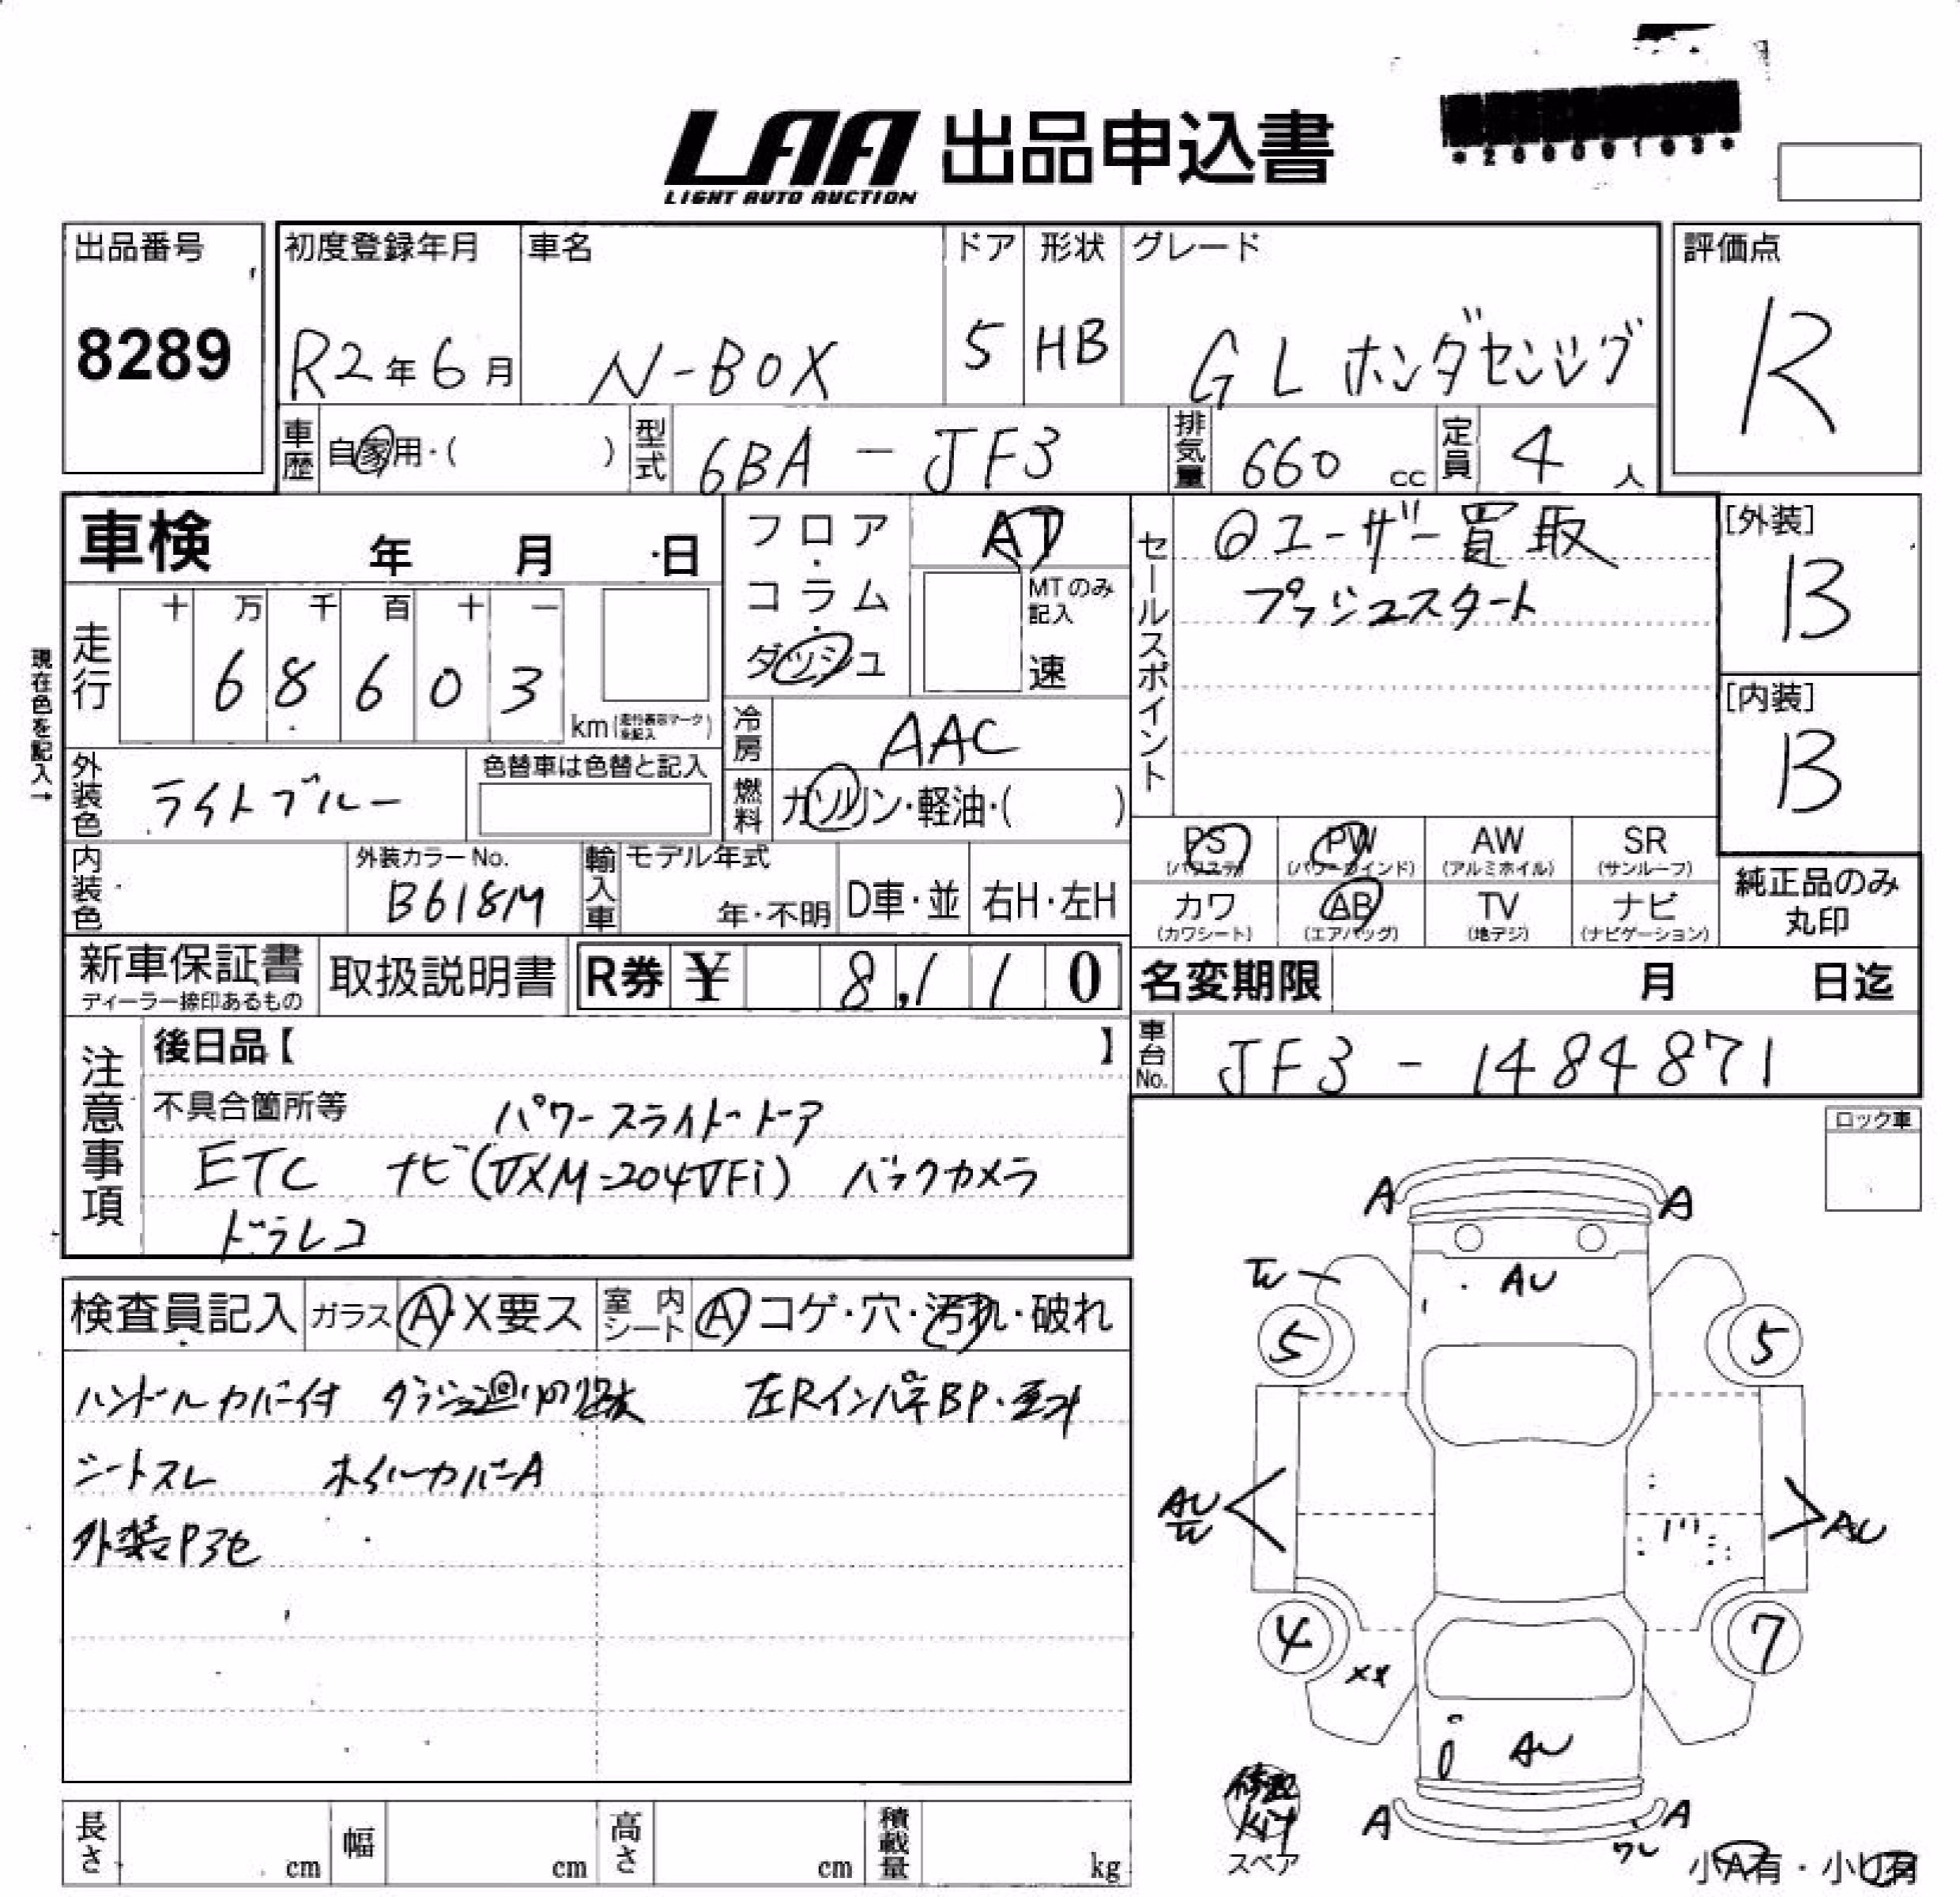 LAA 出品申込書
LIGHT AUTO AUCTION
*20000103*
出品番号
8289
初度登録年月
R2年6月
車名
N-BOX
ドア
5
形状
HB
グレード
GL ホンダセンシング
評価点
R
車歴
自家用・( )
型式
6BA - JF3
排気量
660 cc
定員
4 人
車検 年 月 日
フロア・コラム・ダッシュ
AT
MTのみ記入
速
セールスポイント
◎ユーザー買取
プッシュスタート
[外装]
B
[内装]
B
現在色を記入→
走行
十 万 千 百 十 一
6 8 6 0 3
km (走行表示マークを記入)
冷房
AAC
外装色
ライトブルー
色替車は色替と記入
燃料
ガソリン・軽油・( )
PS (パワステ)
PW (パワーウインド)
AW (アルミホイル)
SR (サンルーフ)
カワ (カワシート)
AB (エアバッグ)
TV (地デジ)
ナビ (ナビゲーション)
純正品のみ丸印
内装色
外装カラーNo.
B618M
輸入車
モデル年式
年・不明
D車・並
右H・左H
新車保証書
ディーラー捺印あるもの
取扱説明書
R券 ¥ 8,110
名変期限 月 日迄
車台No.
JF3 - 1484871
注意事項
後日品【 】
不具合箇所等
パワースライドドア
ETC ナビ(VXM-204VFi) バックカメラ
ドラレコ
ロック車
検査員記入
ガラス A・X要ス
室内シート A コゲ・穴・汚れ・破れ
ハンドルカバー付 ダッシュ廻り
左RインパネBP・歪み
シートスレ ホイルカバーA
外装P3セ
A A
AU
5 5
AU
AU
4 7
XX
AU
A A
ワレ
修理Kit
スペア
小A有・小U有
長さ cm
幅 cm
高さ cm
積載量 kg